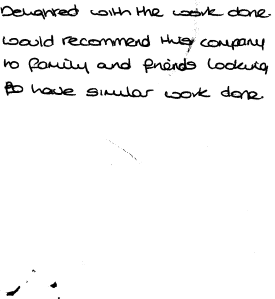 Delighted with the work done.
would recommend this company
to family and friends looking
to have similar work done.